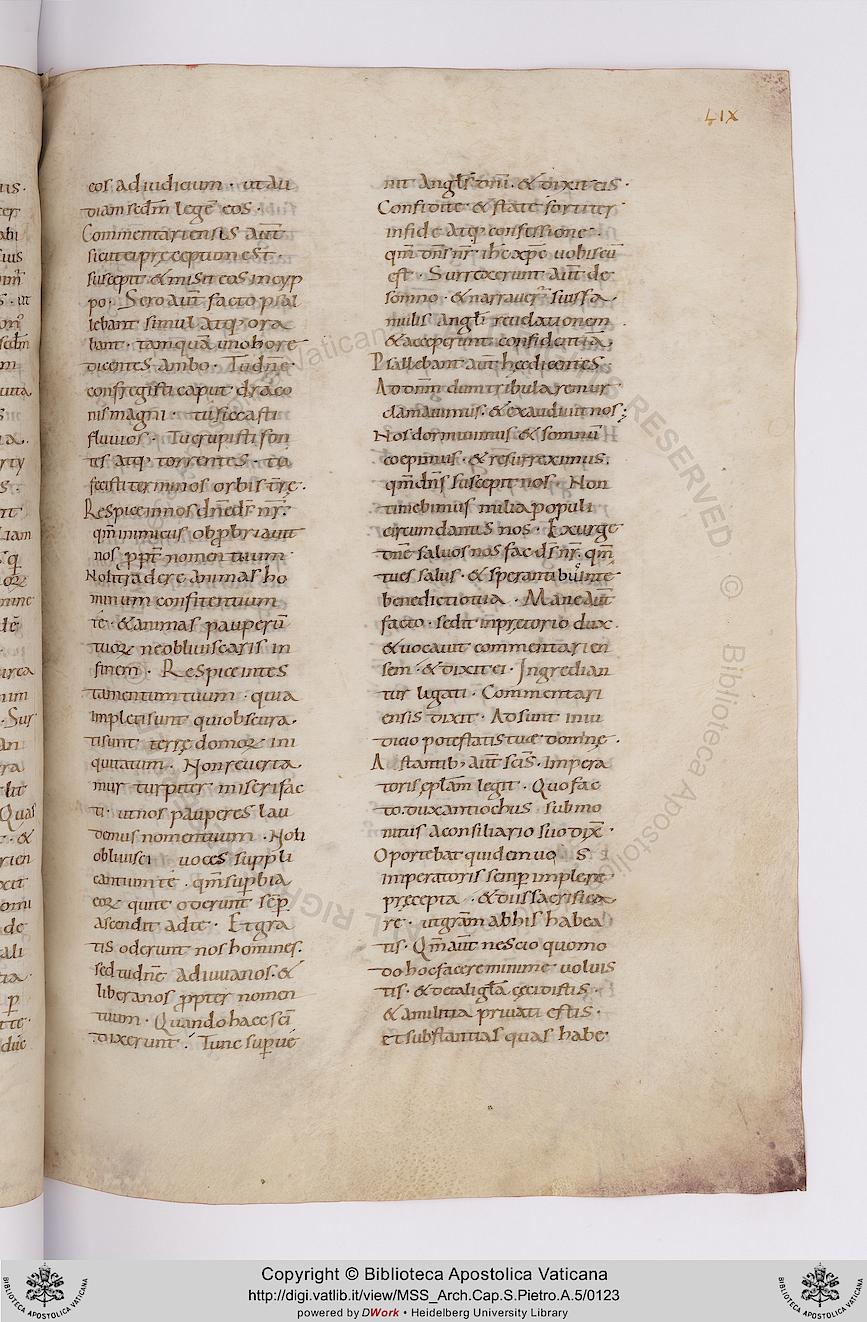 LIX
eos ad iudicium · ut au
diam sedm̄ legē eos ·
Commentariensis aut̄
sicut ei pręceptum est ·
suscepit & misit eos in cyp
po · Sero aut̄ facto psal
lebant simul atq; ora
bant · tamquā uno hore
dicentes ambo · Tu dn̄e
confregisti caput draco
nis magni · tu siccasti
fluuios · Tu erupisti fon
tes atq; torrentes · tu
fecisti terminos orbis tr̄e ·
Respice in nos dn̄e ds̄ nr̄ ·
qm̄ inimicus obprobriauit
nos propt̄ nomen tuum ·
Noli tradere animas ho
minum confitentium
te · & animas pauperū
tuoꝝ ne obliuiscaris in
finem · Respice in tes
tamentum tuum · quia
impleti sunt qui obscura ·
ti sunt terrę domoꝝ ini
quitatum · Non reuerta
mur turpiter miseri fac
ti · ut nos pauperes lau
demus nomen tuum · Noli
obliuisci uoces suppli
cantium te · qm̄ supbia
eoꝝ qui te oderunt sēp
ascendit ad te · Et gra
tis oderunt nos homines ·
sed tu dn̄e adiuua nos · &
libera nos propter nomen
tuum · Quando haec sc̄i
dixerunt · Tunc superuē
nit Angls̄ dn̄i · & dixit eis ·
Confidite & state fortiter
in fide atq; confessione ·
qm̄ dn̄s nr̄ ih̄c xp̄c uobiscū
est · Surrexerunt aut̄ de
somno · & narrauer̄ suis fa
mulis Angl̄i reuelationem
& acceperunt confidentiā ·
Psallebant aut̄ hęc dicentes
Ad dn̄m dum tribularemur
clamauimus · & exaudiuit nos ;
Nos dormiuimus & somnū
coepimus · & resurreximus ·
qm̄ dn̄s suscepit nos · Non
timebimus milia populi
circumdantis nos · Exurge
dn̄e saluos nos fac ds̄ nr̄ · qm̄
tu es salus · & sperantibus in te
benedictio tua · Mane aut̄
facto · sedit in prętorio dux ·
& uocauit commentarien
sem · & dixit ei · Ingredian
tur ligati · Commentari
ensis dixit · Adsunt in iu
dicio potestatis tuę domine ·
Astantib; aut̄ sc̄is · Impera
toris eplām legit · Quo fac
to · dux antiochus submo
nitus a consiliario suo dix̄ ·
Oportebat quidem uos
imperatoris semp implere
pręcepta · & diis sacrifica
re · ut gram̄ ab his habea
tis · Qm̄ aut̄ nescio quomo
do hoc facere minime uoluis
tis · & de tali gl̄a excidistis ·
& a militia priuati estis ·
et substantias quas habe
Copyright © Biblioteca Apostolica Vaticana
http://digi.vatlib.it/view/MSS_Arch.Cap.S.Pietro.A.5/0123
powered by DWork • Heidelberg University Library